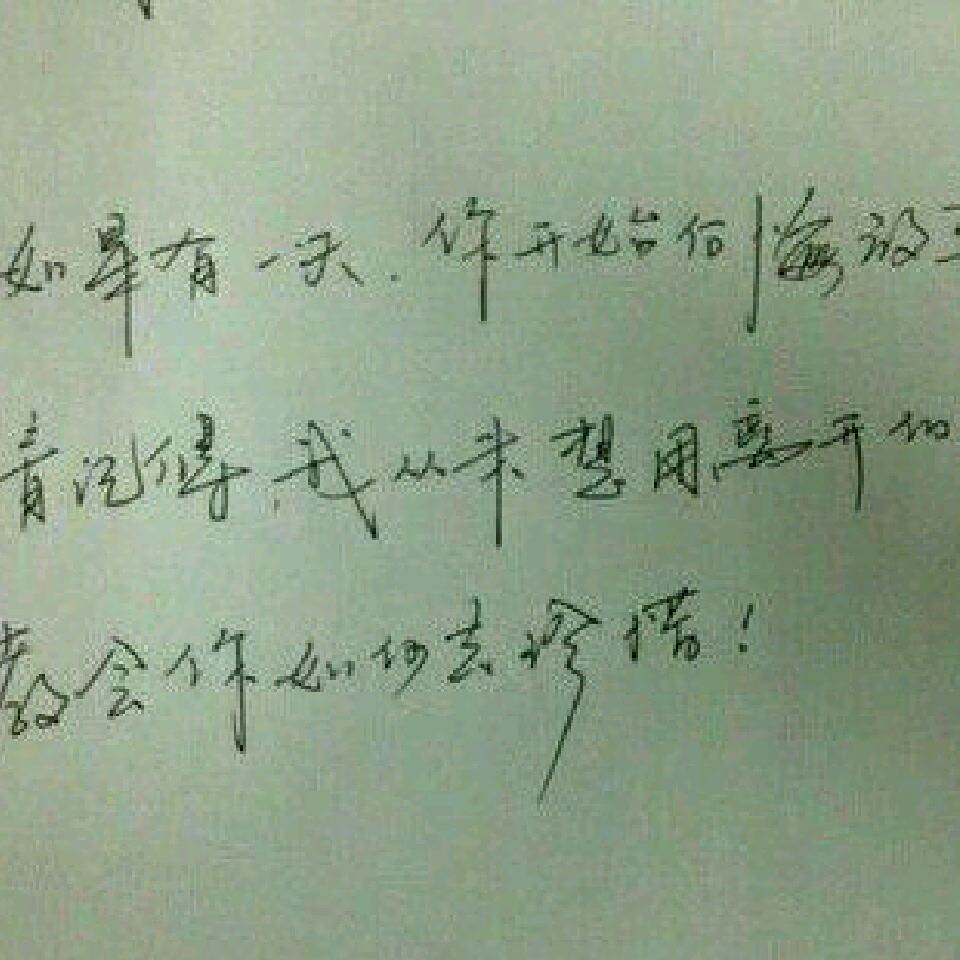 如果有一天.你开始后悔放
记得,我从未想用离开的
教会你如何去珍惜!